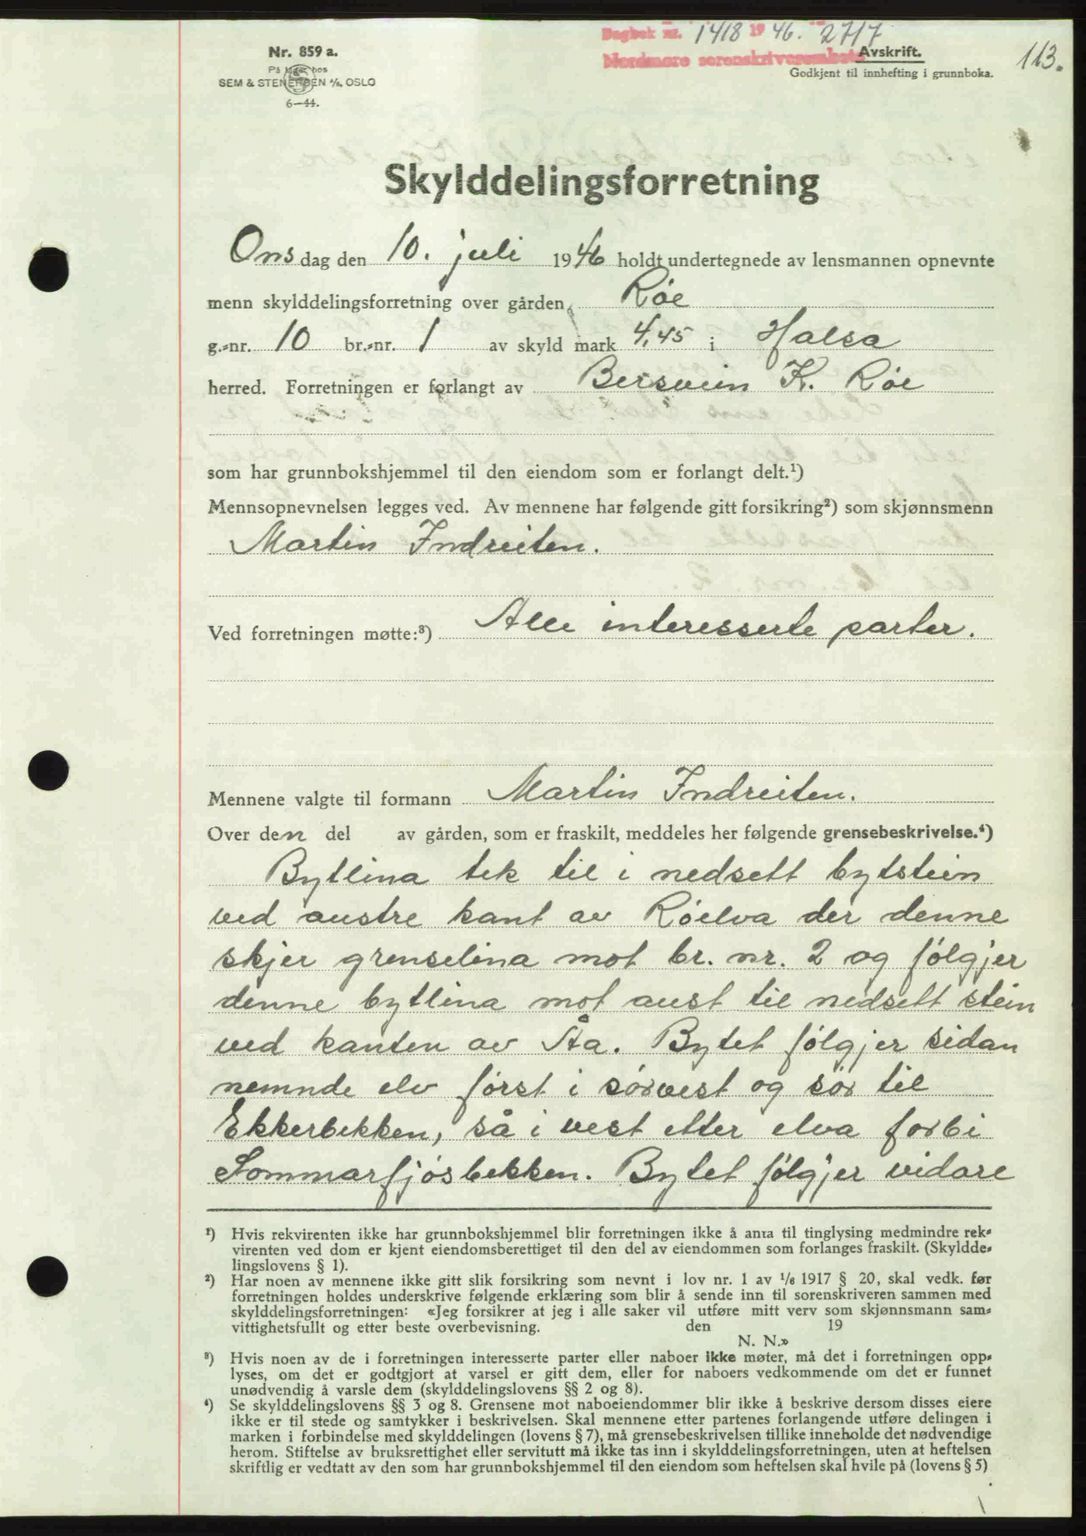 Dagbok nr. 1418 1946. 2717
Nordmøre sorenskriverembete
Avskrift.
Godkjent til innhefting i grunnboka.
113.
Nr. 859 a.
På lager hos
SEM & STENERSEN A/S, OSLO
6—44.
Skylddelingsforretning
Onsdag den 10. juli 1946 holdt undertegnede av lensmannen opnevnte
menn skylddelingsforretning over gården Røe
g.-nr. 10 br.-nr. 1 av skyld mark 4,45 i Halsa
herred. Forretningen er forlangt av Bersvein K. Røe
som har grunnbokshjemmel til den eiendom som er forlangt delt.¹)
Mennsopnevnelsen legges ved. Av mennene har følgende gitt forsikring²) som skjønnsmenn
Martin Indreiten.
Ved forretningen møtte:³) Alle interesserte parter.
Mennene valgte til formann Martin Indreiten.
Over den del av gården, som er fraskilt, meddeles her følgende grensebeskrivelse.⁴)
Bytlina tek til i nedsett bytstein
ved austre kant av Røelva der denne
skjer grenselina mot br. nr. 2 og følgjer
denne bytlina mot aust til nedsett stein
ved kanten av Åa. Bytet følgjer sidan
nemnde elv først i sørvest og sør til
Ekkerbekken, så i vest etter elva forbi
Sommarfjøsbekken. Bytet følgjer vidare
¹) Hvis rekvirenten ikke har grunnbokshjemmel blir forretningen ikke å anta til tinglysing medmindre rek-
virenten ved dom er kjent eiendomsberettiget til den del av eiendommen som forlanges fraskilt. (Skyldde-
lingslovens § 1).
²) Har noen av mennene ikke gitt slik forsikring som nevnt i lov nr. 1 av 1/6 1917 § 20, skal vedk. før
forretningen holdes underskrive følgende erklæring som blir å sende inn til sorenskriveren sammen med
skylddelingsforretningen: «Jeg forsikrer at jeg i alle saker vil utføre mitt verv som skjønnsmann sam-
vittighetsfullt og etter beste overbevisning. den 19
N. N.»
³) Hvis noen av de i forretningen interesserte parter eller naboer ikke møter, må det i forretningen opp-
lyses, om det er godtgjort at varsel er gitt dem, eller for naboers vedkommende om det er funnet
unødvendig å varsle dem (skylddelingslovens §§ 2 og 8).
⁴) Se skylddelingslovens §§ 3 og 8. Grensene mot naboeiendommer blir ikke å beskrive dersom disses eiere
ikke er til stede og samtykker i beskrivelsen. Skal mennene etter partenes forlangende utføre delingen i
marken i forbindelse med skylddelingen (lovens § 7), må grensebeskrivelsen tillike inneholde det nødvendige
herom. Stiftelse av bruksrettighet eller servitutt må ikke tas inn i skylddelingsforretningen, uten at heftelsen
skriftlig er vedtatt av den som har grunnbokshjemmel til den eiendom som heftelsen skal hvile på (lovens § 5)